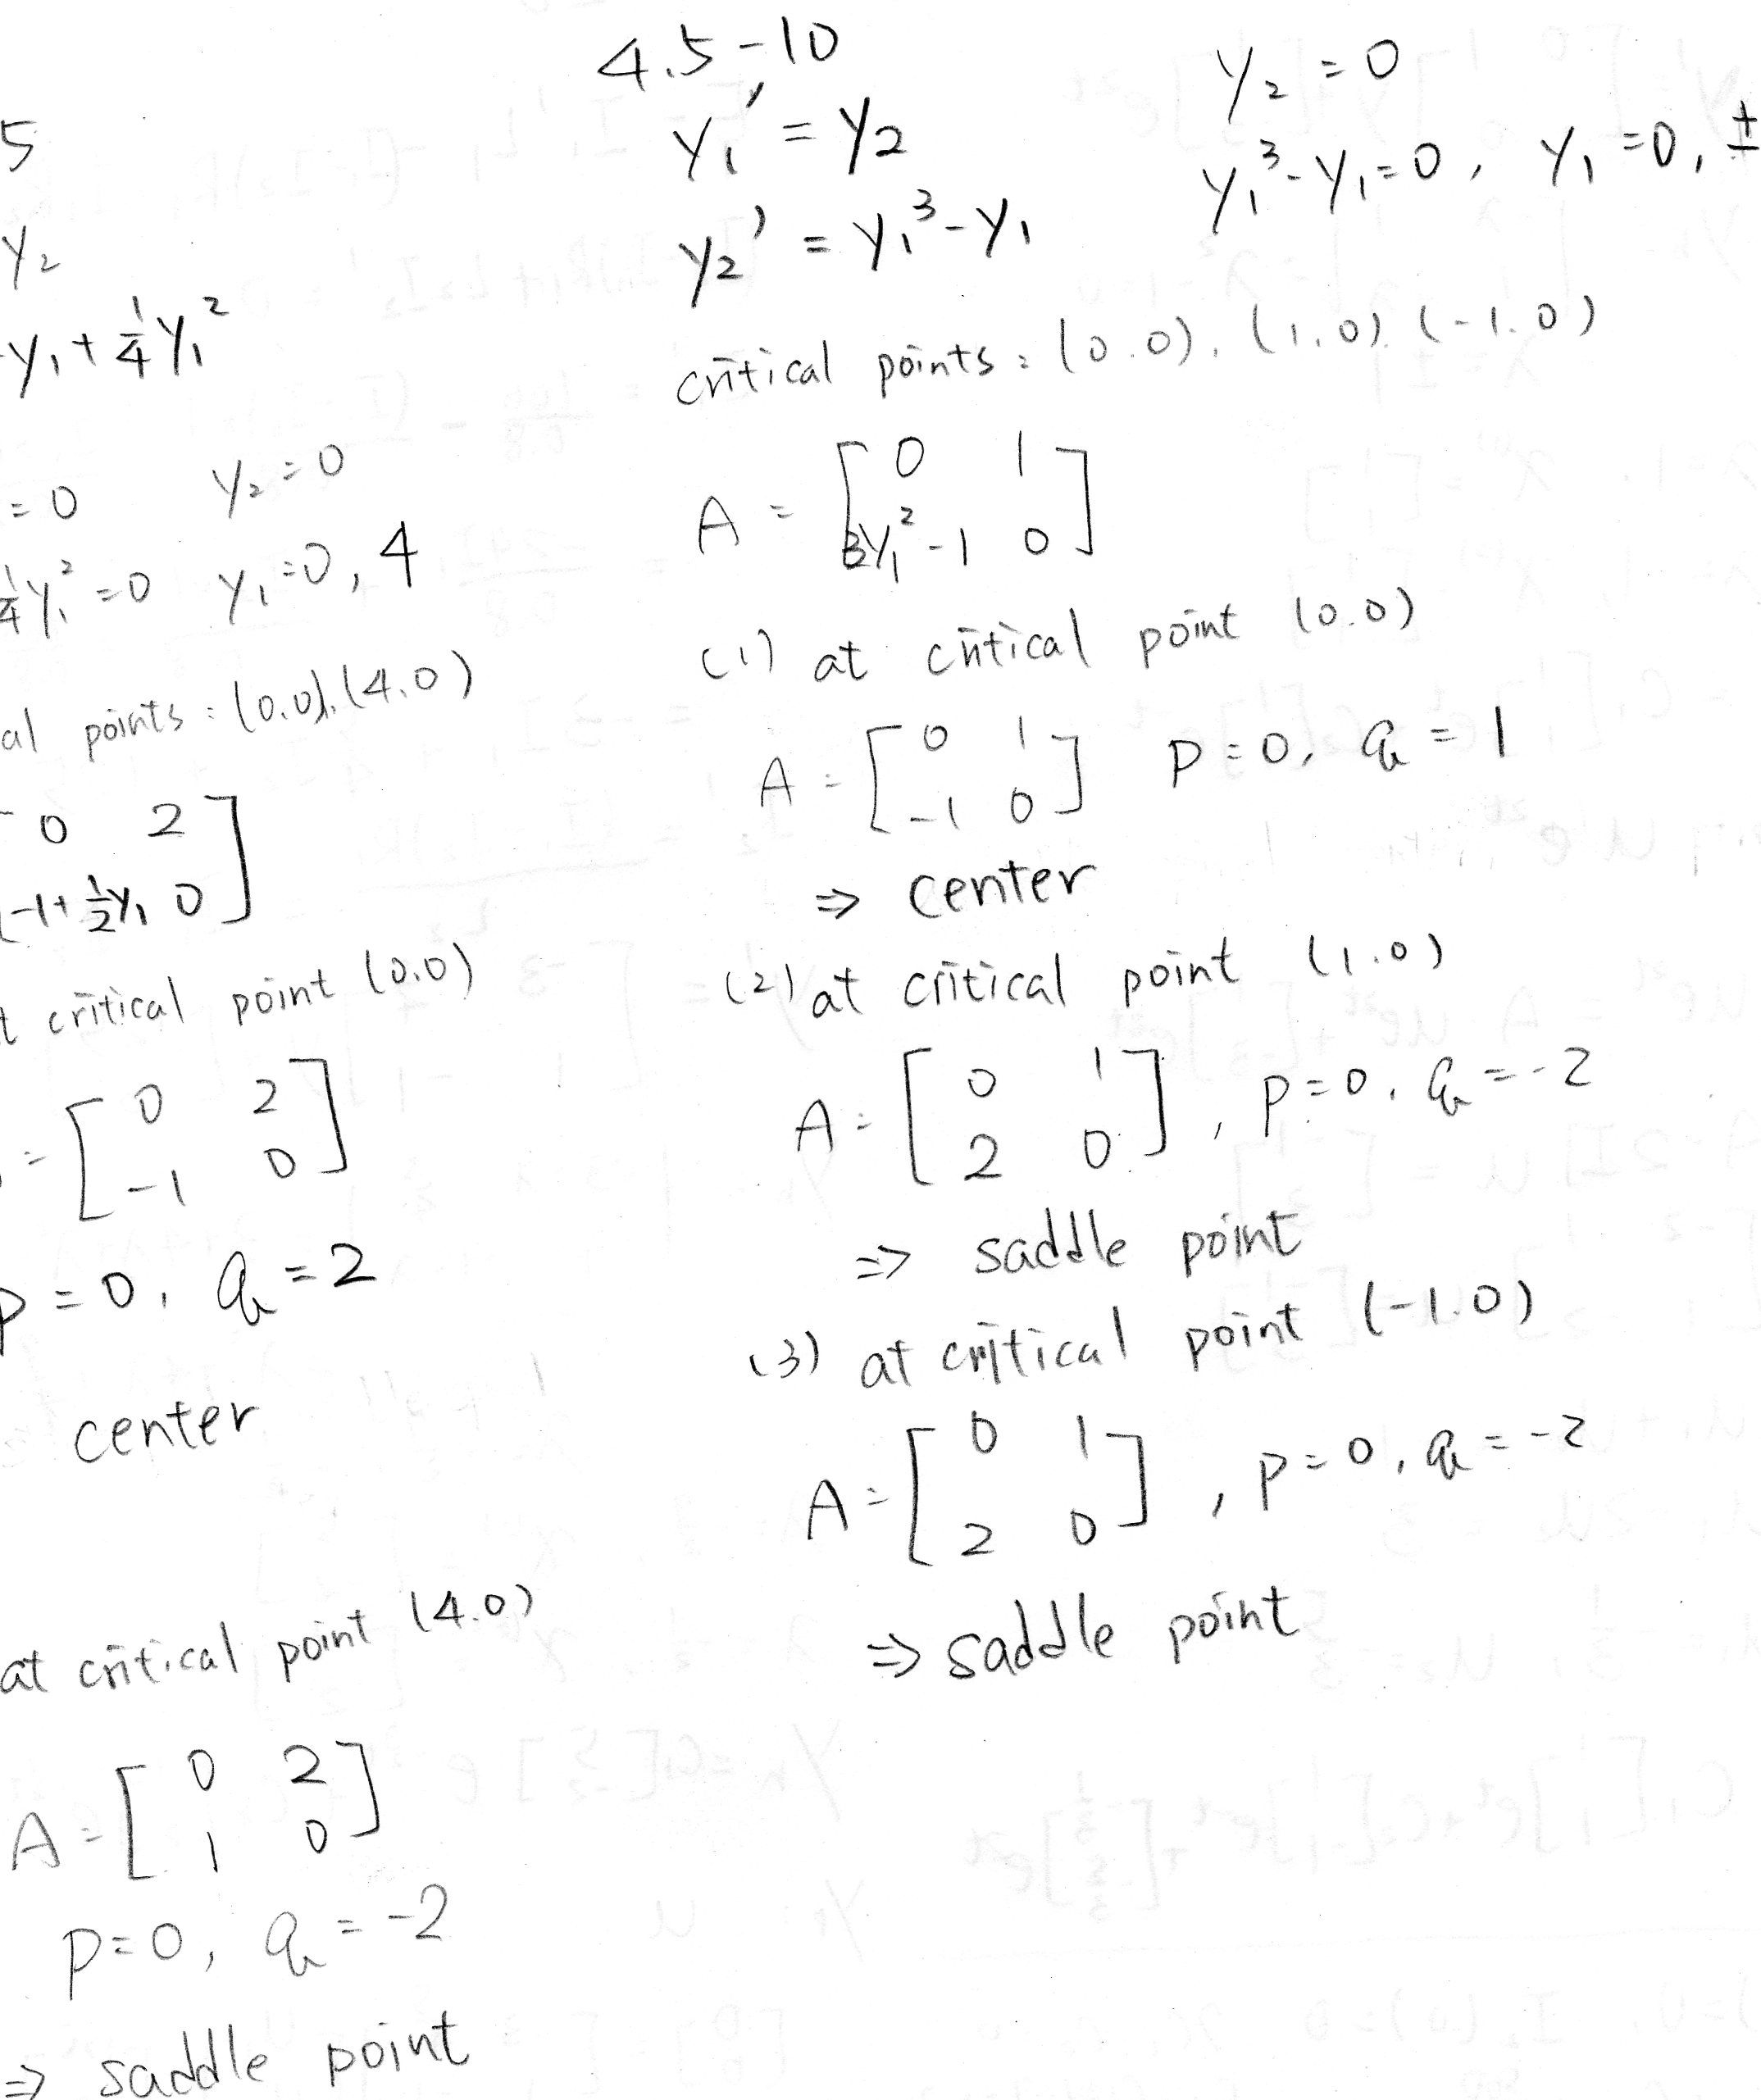 5
y₂
-y₁ + 1/4 y₁²
= 0    y₂ = 0
1/4 y₁² = 0    y₁ = 0, 4
al points : (0.0), (4.0)
0  2
-1 + 1/2 y₁  0 ]
t critical point (0.0)
= [ 0  2
-1  0 ]
p = 0, q = 2
center
at critical point (4.0)
A = [ 0  2
1  0 ]
p = 0, q = -2
⇒ saddle point
4.5-10
y₁' = y₂
y₂' = y₁³ - y₁
y₂ = 0
y₁³ - y₁ = 0, y₁ = 0, ±
critical points : (0.0), (1.0) (-1.0)
A = [ 0  1
3y₁² - 1  0 ]
(1) at critical point (0.0)
A = [ 0  1
-1  0 ]  p = 0, q = 1
⇒ center
(2) at critical point (1.0)
A = [ 0  1
2  0 ], p = 0, q = -2
⇒ saddle point
(3) at critical point (-1.0)
A = [ 0  1
2  0 ], p = 0, q = -2
⇒ saddle point